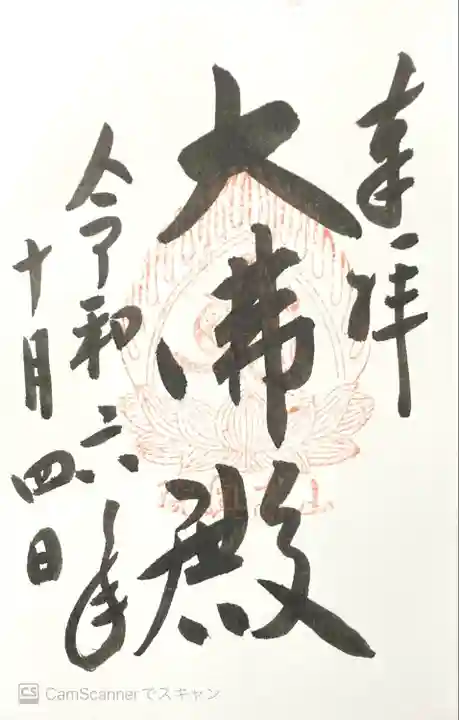 奉拝
大佛殿
令和六年
十月四日
CS CamScannerでスキャン